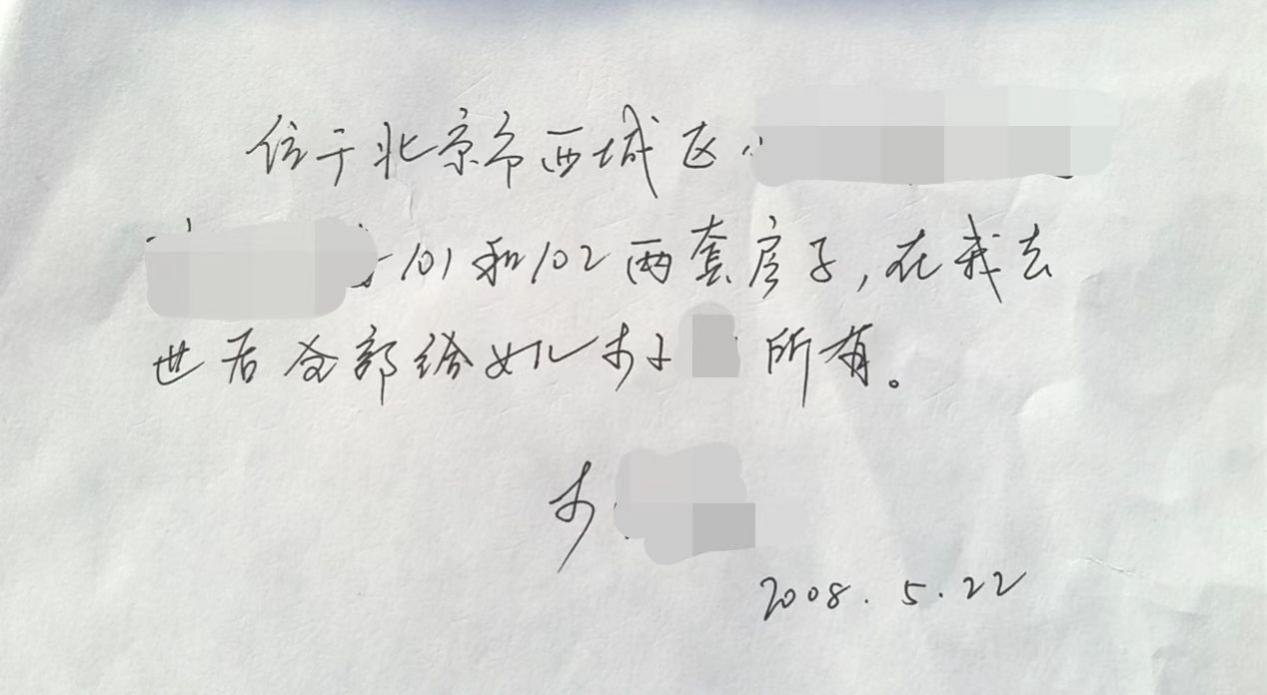 位于北京市西城区
101和102两套房子,在我去
世后全部给女儿李 所有。
李
2008.5.22